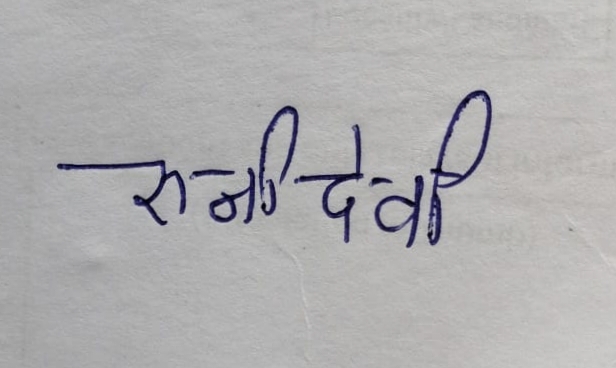 रुनी देवी